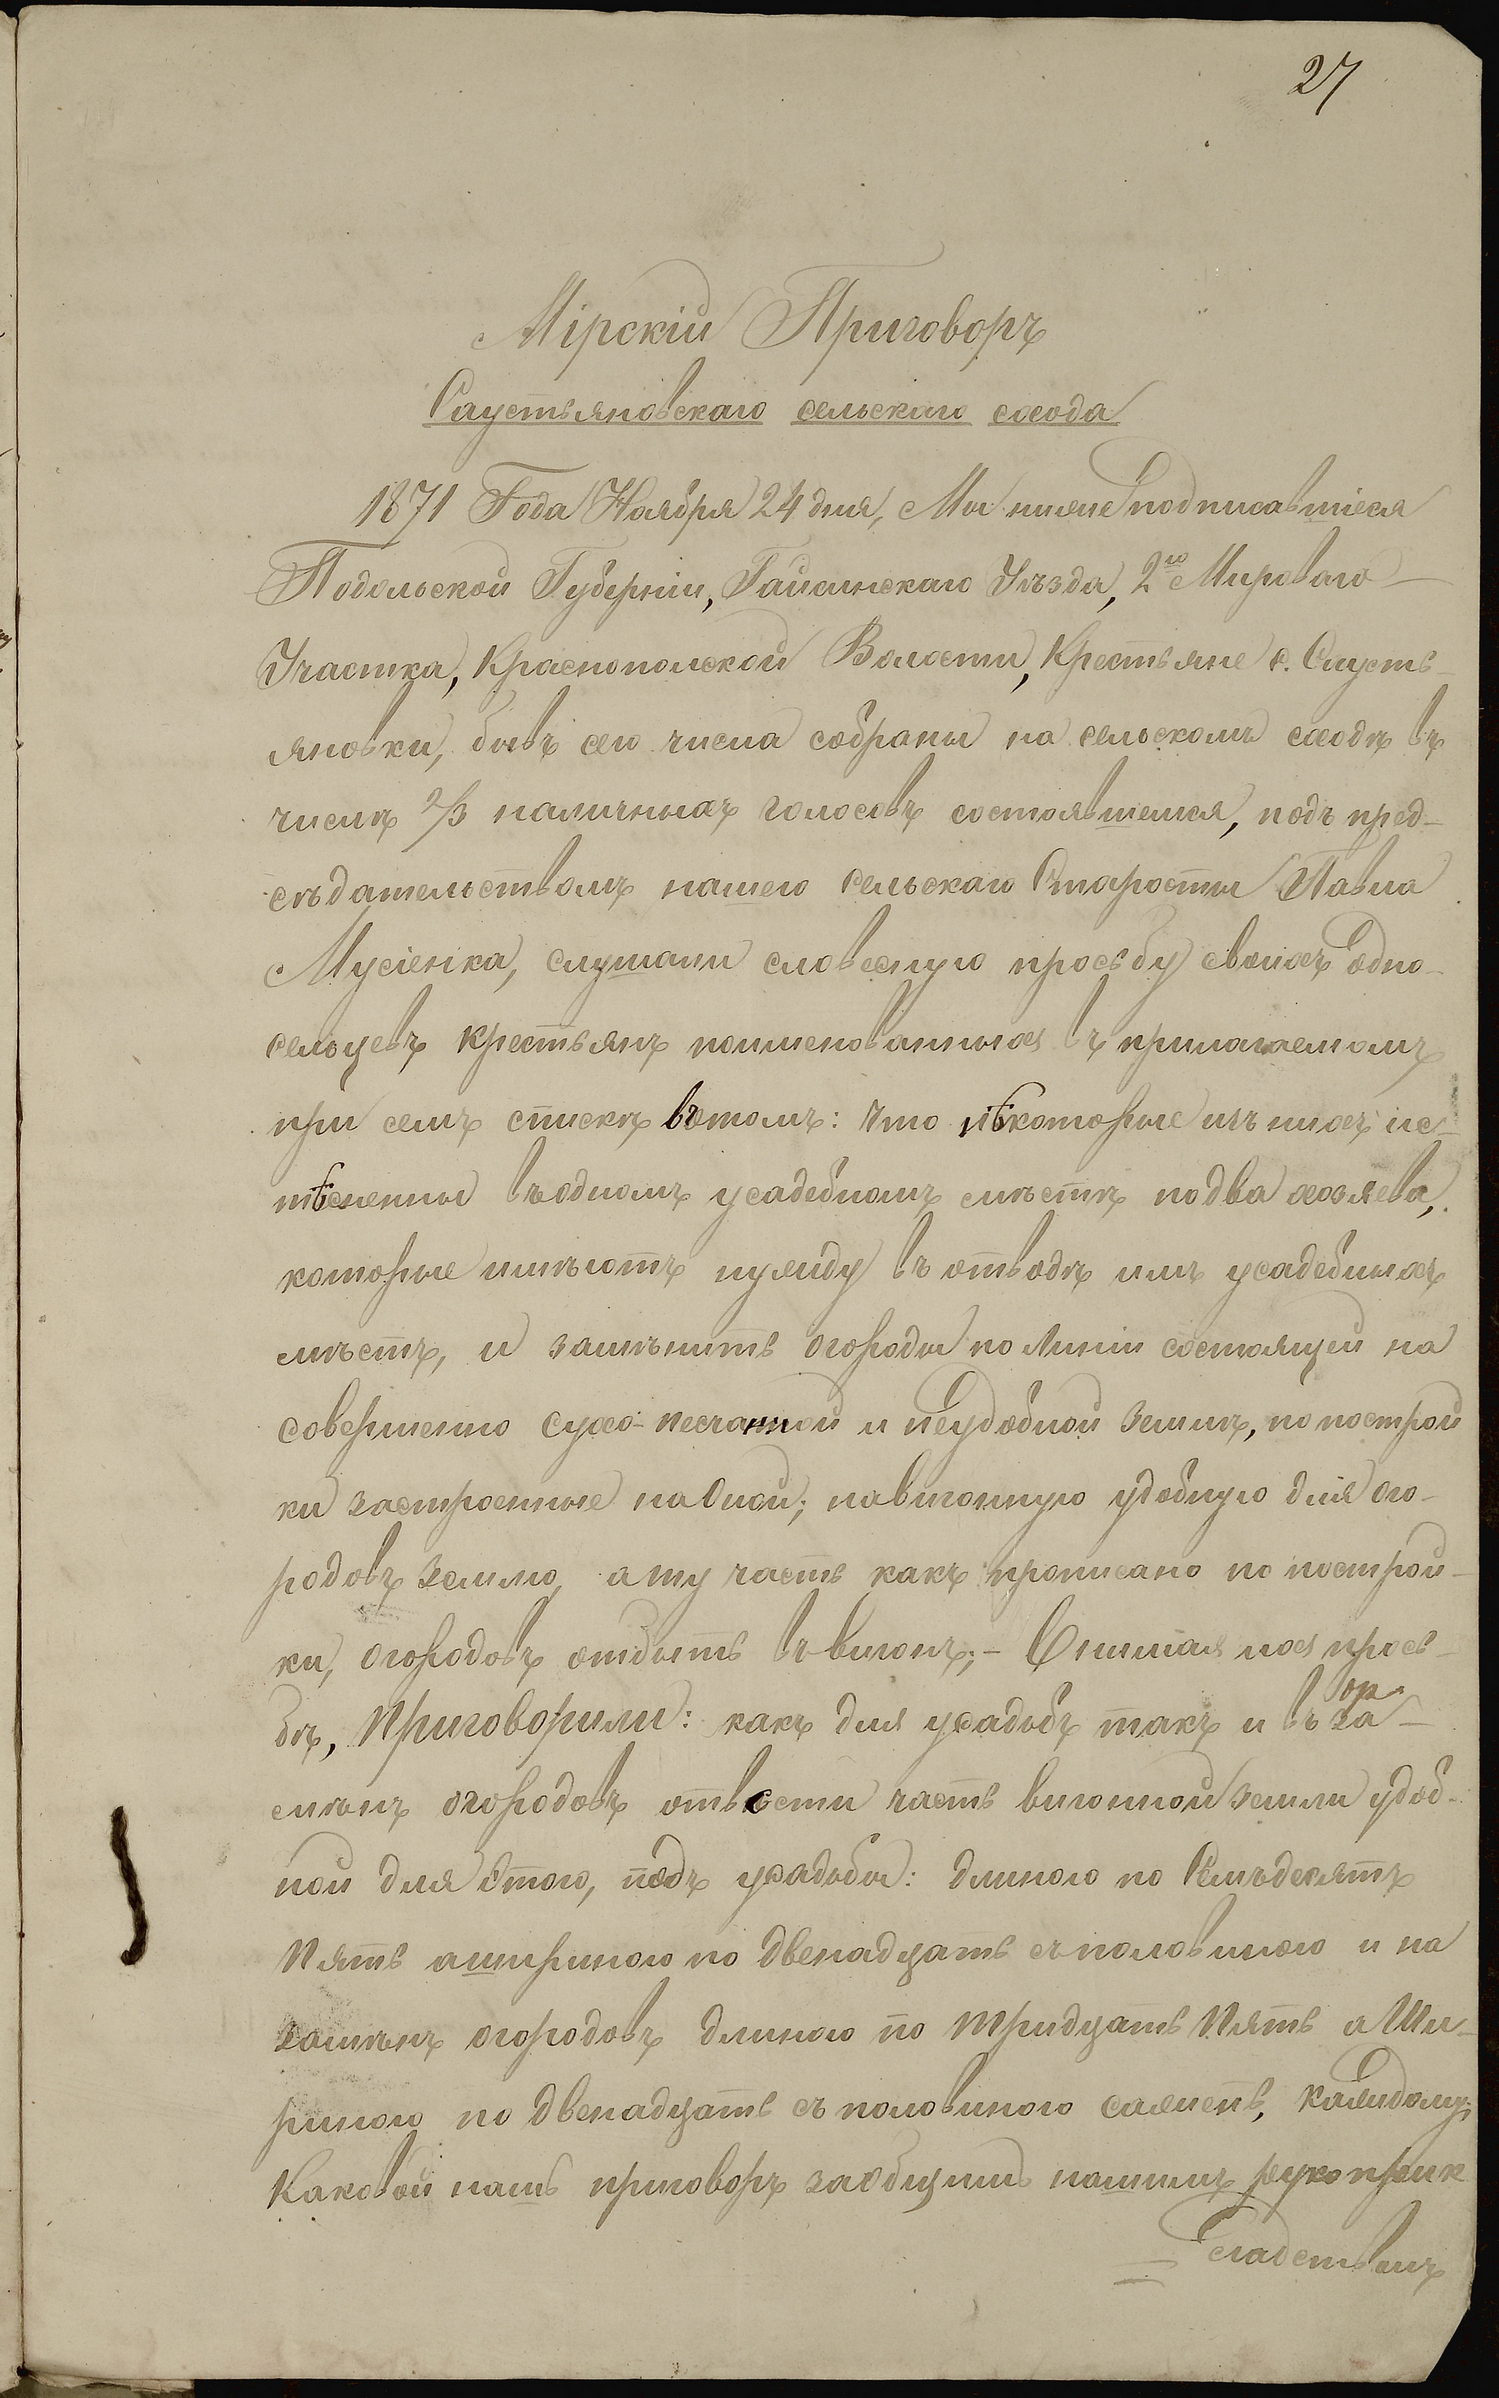 27
Мірскій Приговоръ
Саустьяновскаго сельскаго схода
1871 Года Ноября 24 дня, Мы ниже подписавшіеся
Подольской Губерніи, Гайсинскаго Уѣзда, 2го Мироваго
Участка, Краснопольской Волости, Крестьяне с. Саусть-
яновки, бывъ сего числа собраны на сельскомъ сходѣ въ
числѣ 2/3 наличныхъ голосовъ состоявшемся, подъ пред-
сѣдательствомъ нашего сельскаго Старосты Павла
Мусіенка, слушали словесную просьбу своихъ одно-
сельцевъ крестьянъ поименованныхъ въ прилагаемомъ
при семъ спискѣ вътомъ: что нѣкоторые изъ нихъ
тѣснены въ одномъ усадебномъ мѣстѣ по два хозяева,
которые имѣютъ нужду въ отводѣ имъ усадебныхъ
мѣстъ, и замѣнить огороды по Линіи состоящей на
совершенно сухо-песчанной и неудобной землѣ, по построй
ки застроенные на Оной; на вигонную удобную для ого-
родовъ землю, а ту часть какъ прописано по построй-
ки, огородовъ отбыть въ вигонъ; - Внимая ихъ прось-
бѣ, Приговорили: какъ для усадьбъ такъ и въ за-
мѣнъ огородовъ отвести часть вигонной земли удоб-
ной для Этого, подъ усадьбы: длиною по Семъдесятъ
Пять а шириною по двенадцать съ половиною и на
замѣнъ огородовъ длиною по тридцать Пять а Ши-
риною по двенадцать съ половиною сажень, каждому;
Каковой нашъ приговоръ заобщимъ нашимъ рукоприк
ладствомъ